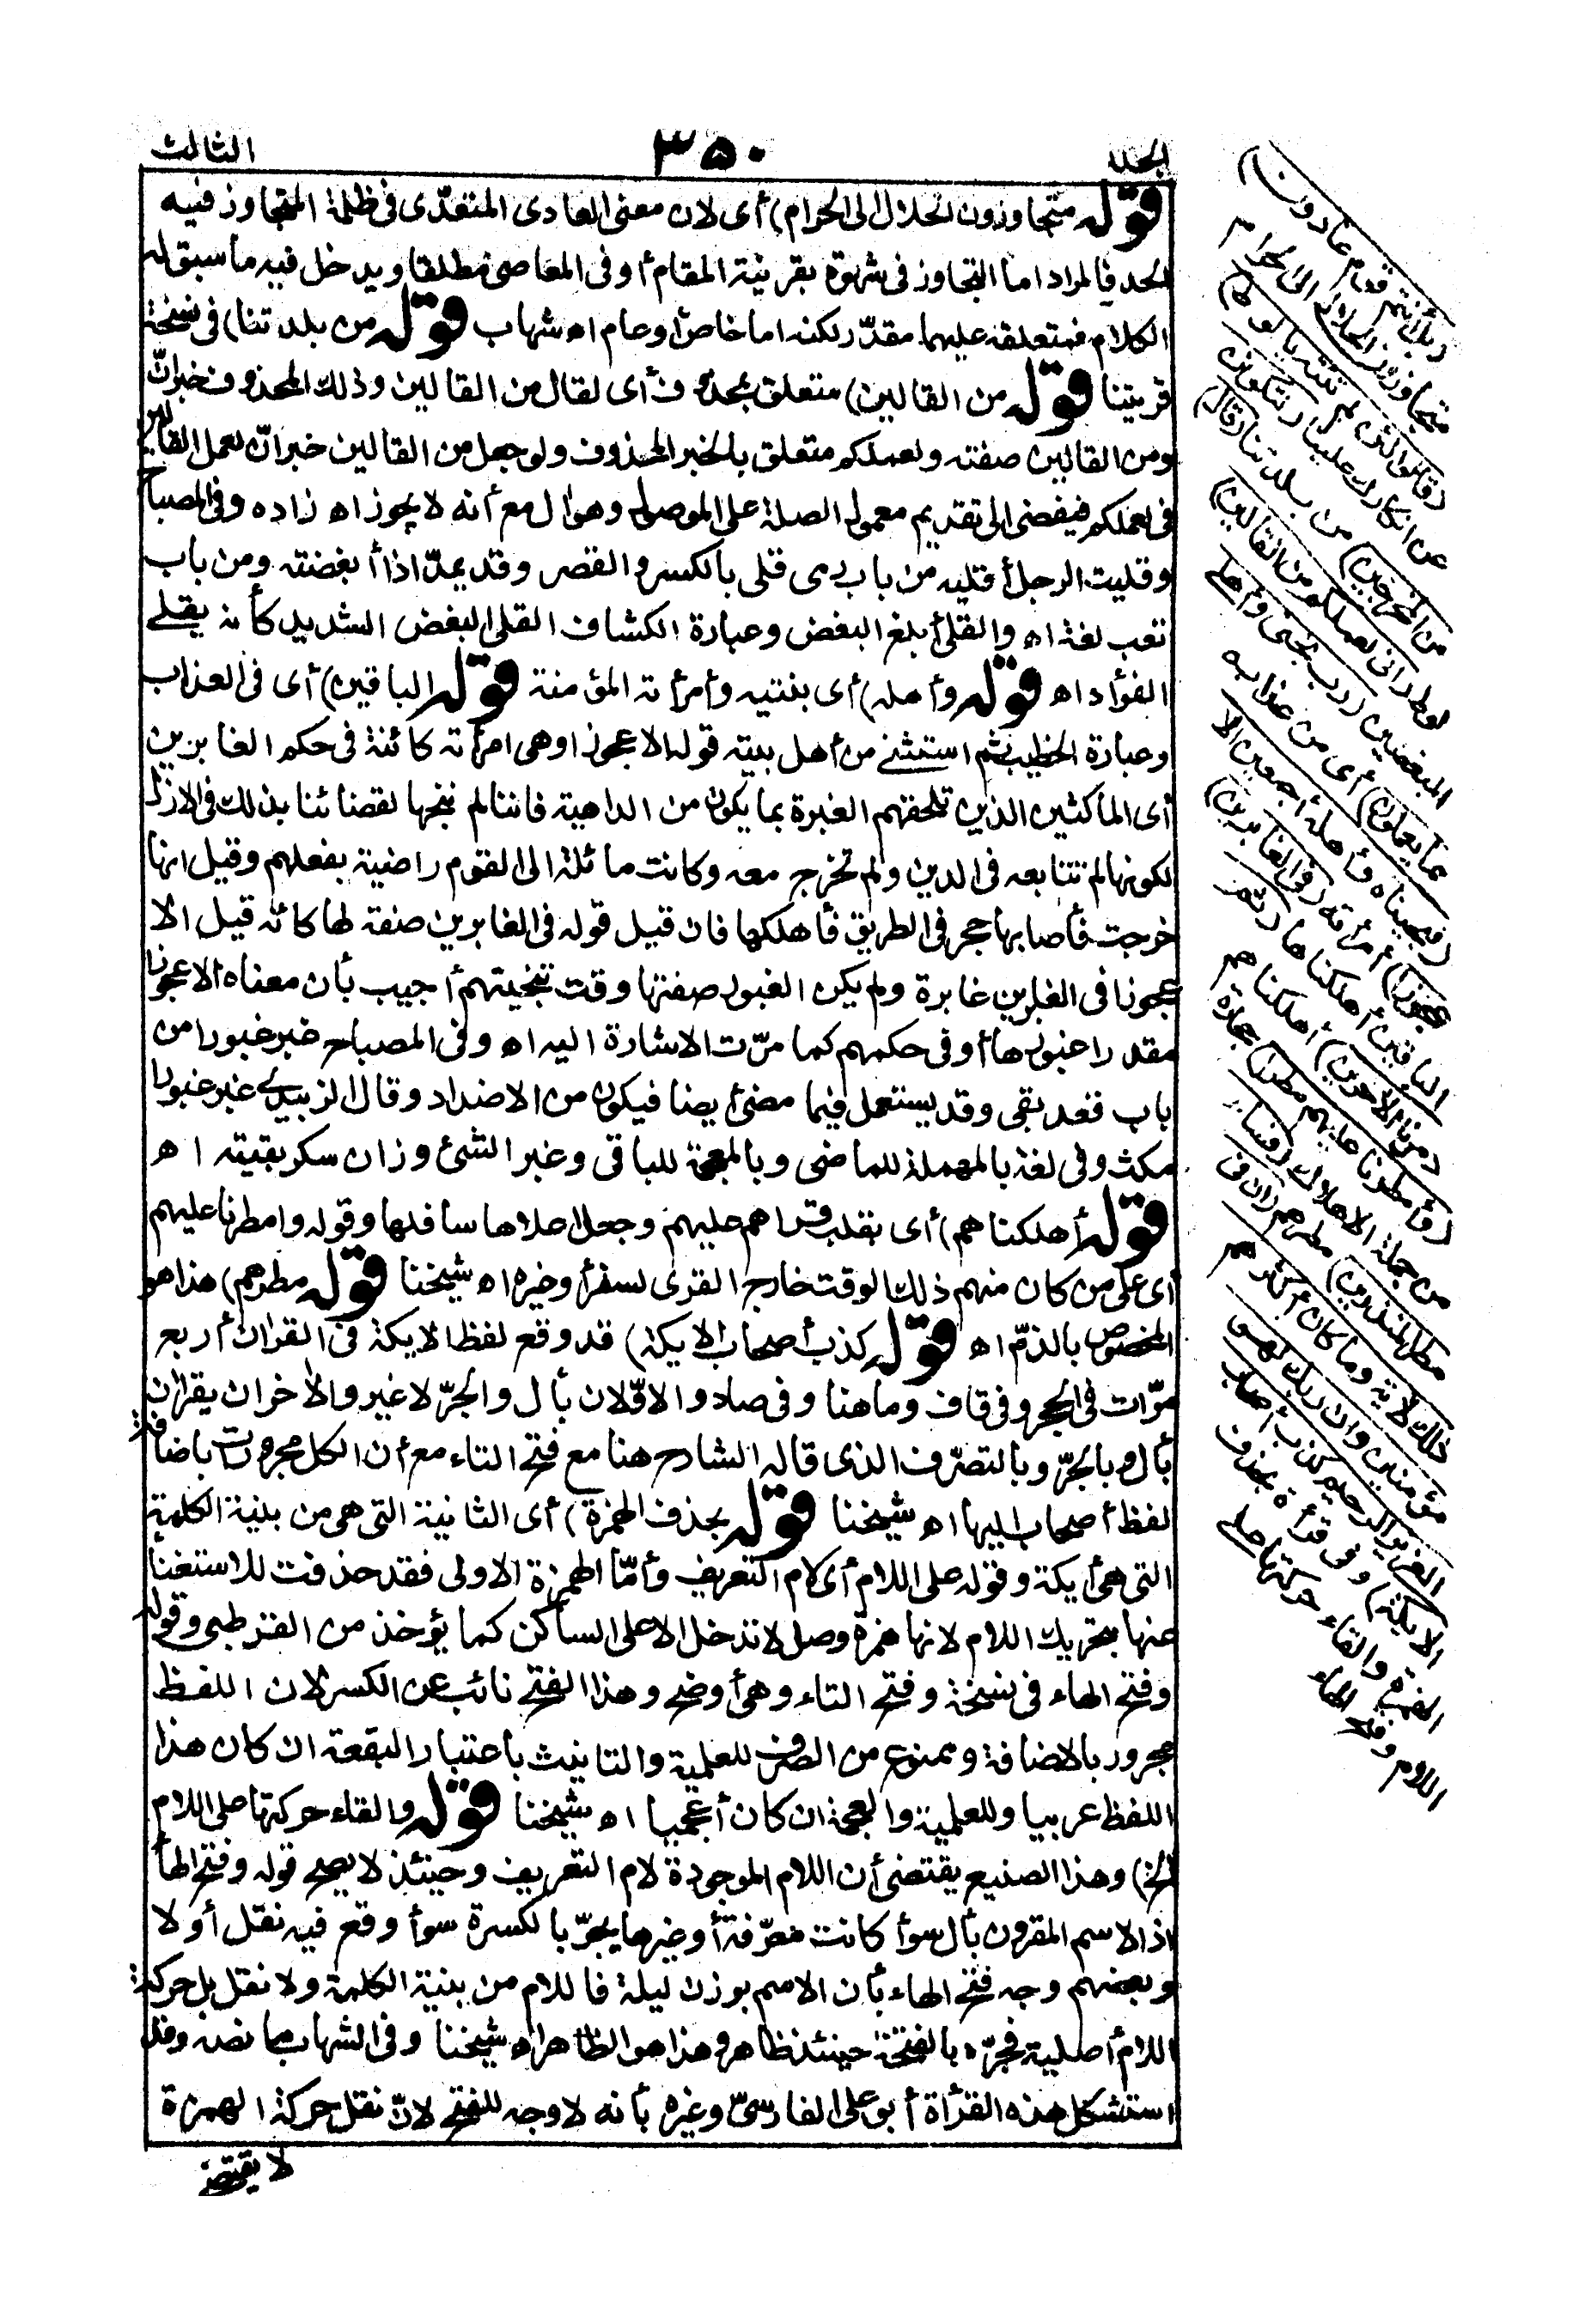 الجلد
٣٥٠
الثالث
قوله متجاوزون الحلال الى الحرام) أى لان معنى العادى المتعدّى فى ظلمة المتجاوز فيه
الحد فالمراد اما التجاوز فى شهوة بقرينة المقام أو فى المعاصى مطلقا ويدخل فيه ما سبق له
الكلام فمتعلقه عليهما مقدّر لكنه اما خاص أو عام اه شهاب قوله من بلدتنا) فى نسخة
قريتنا قوله من القالين) متعلق بمحذوف أى لقال من القالين وذلك المحذوف خبر انّ
ومن القالين صفته ولعملكم متعلق بالخبر المحذوف ولو جعل من القالين خبر انّ لعمل القالين
فى لعملكم فيفضى الى تقديم معمول الصلة على الموصول وهو ال مع أنه لا يجوز اه زاده وفى المصباح
وقليت الرجل أقليه من باب رمى قلى بالكسر والقصر وقد يمدّ اذا أبغضته ومن باب
تعب لغة اه والقلى أبلغ البغض وعبارة الكشاف القلى البغض الشديد كأنه يقلى
الفؤاد اه قوله وأهله) أى بنتيه وامرأته المؤمنة قوله الباقين) أى فى العذاب
وعبارة الخطيب ثم استثنى من أهل بيته قوله الا عجوزا وهى امرأته كائنة فى حكم الغابرين
أى الماكثين الذين تلحقهم الغبرة بما يكون من الداهية فاننا لم ننجها لقضائنا بذلك فى الازل
لكونها لم تتابعه فى الدين ولم تخرج معه وكانت مائلة الى القوم راضية بفعلهم وقيل انها
خرجت فأصابها حجر فى الطريق فأهلكها فان قيل قوله فى الغابرين صفة لها كأنه قيل الا
عجوزا فى الغابرين غابرة ولم يكن الغبور صفتها وقت تنجيتهم أجيب بأن معناه الا عجوزا
مقدرا غبورها أو فى حكمهم كما مرّت الاشارة اليه اه وفى المصباح غبر غبورا من
باب قعد بقى وقد يستعمل فيما مضى أيضا فيكون من الاضداد وقال الزبيدى غبر غبورا
مكث وفى لغة بالمهملة للماضى وبالمعجمة للباقى وغبر الشئ وزان سكر بقيته اه
قوله أهلكناهم) أى بقلب قراهم عليهم وجعل اعلاها سافلها وقوله وامطرنا عليهم
أى على من كان منهم ذلك الوقت خارج القرى لسفر أو غيره اه شيخنا قوله مطرهم) هذا هو
المخصوص بالذمّ اه قوله كذب أصحاب الايكة) قد وقع لفظ الايكة فى القرآن أربع
مرّات فى الحجر وفى قاف وما هنا وفى صاد والاوّلان بأل والجرّ لا غير والاخران يقرآن
بأل وبالجرّ وبالتصرّف الذى قاله الشارح هنا مع فتح التاء مع أن الكل مجرورات باضافة
لفظ أصحاب اليها اه شيخنا قوله بحذف الهمزة) أى الثانية التى هى من بنية الكلمة
التى هى أيكة وقوله على اللام أى لام التعريف وأمّا الهمزة الاولى فقد حذفت للاستغناء
عنها بتحريك اللام لانها همزة وصل لا تدخل الا على الساكن كما يؤخذ من القرطبى وقوله
وفتح الهاء فى نسخة وفتح التاء وهى أوضح وهذا الفتح نائب عن الكسر لان اللفظ
مجرور بالاضافة وممنوع من الصرف للعلمية والتانيث باعتبار البقعة ان كان هذا
اللفظ عربيا وللعلمية والعجمة ان كان أعجميا اه شيخنا قوله والقاء حركتها على اللام
الخ) وهذا الصنيع يقتضى أن اللام الموجودة لام التعريف وحينئذ لا يصح قوله وفتح الهاء
اذ الاسم المقرون بأل سواء كانت معرّفة أو غيرها يجرّ بالكسرة سواء وقع فيه نقل أو لا
وبعضهم وجه فتح الهاء بأن الاسم بوزن ليلة فاللام من بنية الكلمة ولا نقل بل حركة
اللام أصلية فجرّه بالفتحة حينئذ ظاهر وهذا هو الظاهر اه شيخنا وفى الشهاب ما نصه وقد
استشكل هذه القرأة أبو على الفارسىّ وغيره بأنه لا وجه للفتح لانّ نقل حركة الهمزة
لا يقتضى
(بل أنتم قوم عادون)
متجاوزون الحلال الى الحرام
(قالوا لئن لم تنته يا لوط)
عن انكارك علينا (لتكونن
من المخرجين) من بلدتنا (قال)
لوط (انى لعملكم من القالين)
المبغضين (رب نجنى وأهلى
مما يعملون) أى من عذابه
(فنجيناه وأهله أجمعين الا
عجوزا) امرأته (فى الغابرين)
الباقين أهلكناها (ثم
دمرنا الآخرين) أهلكناهم
(وأمطرنا عليهم مطرا) حجارة
من جملة الاهلاك (فساء
مطر المنذرين) مطرهم (ان فى
ذلك لآية وما كان أكثرهم
مؤمنين وان ربك لهو
العزيز الرحيم كذب أصحاب
الايكة) وفى قرأة بحذف
الهمزة والقاء حركتها على
اللام وفتح الهاء